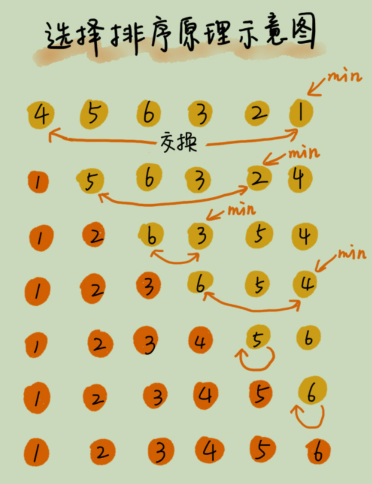 选择排序原理示意图
min
4 5 6 3 2 1
交换
min
1 5 6 3 2 4
min
1 2 6 3 5 4
min
1 2 3 6 5 4
1 2 3 4 5 6
1 2 3 4 5 6
1 2 3 4 5 6